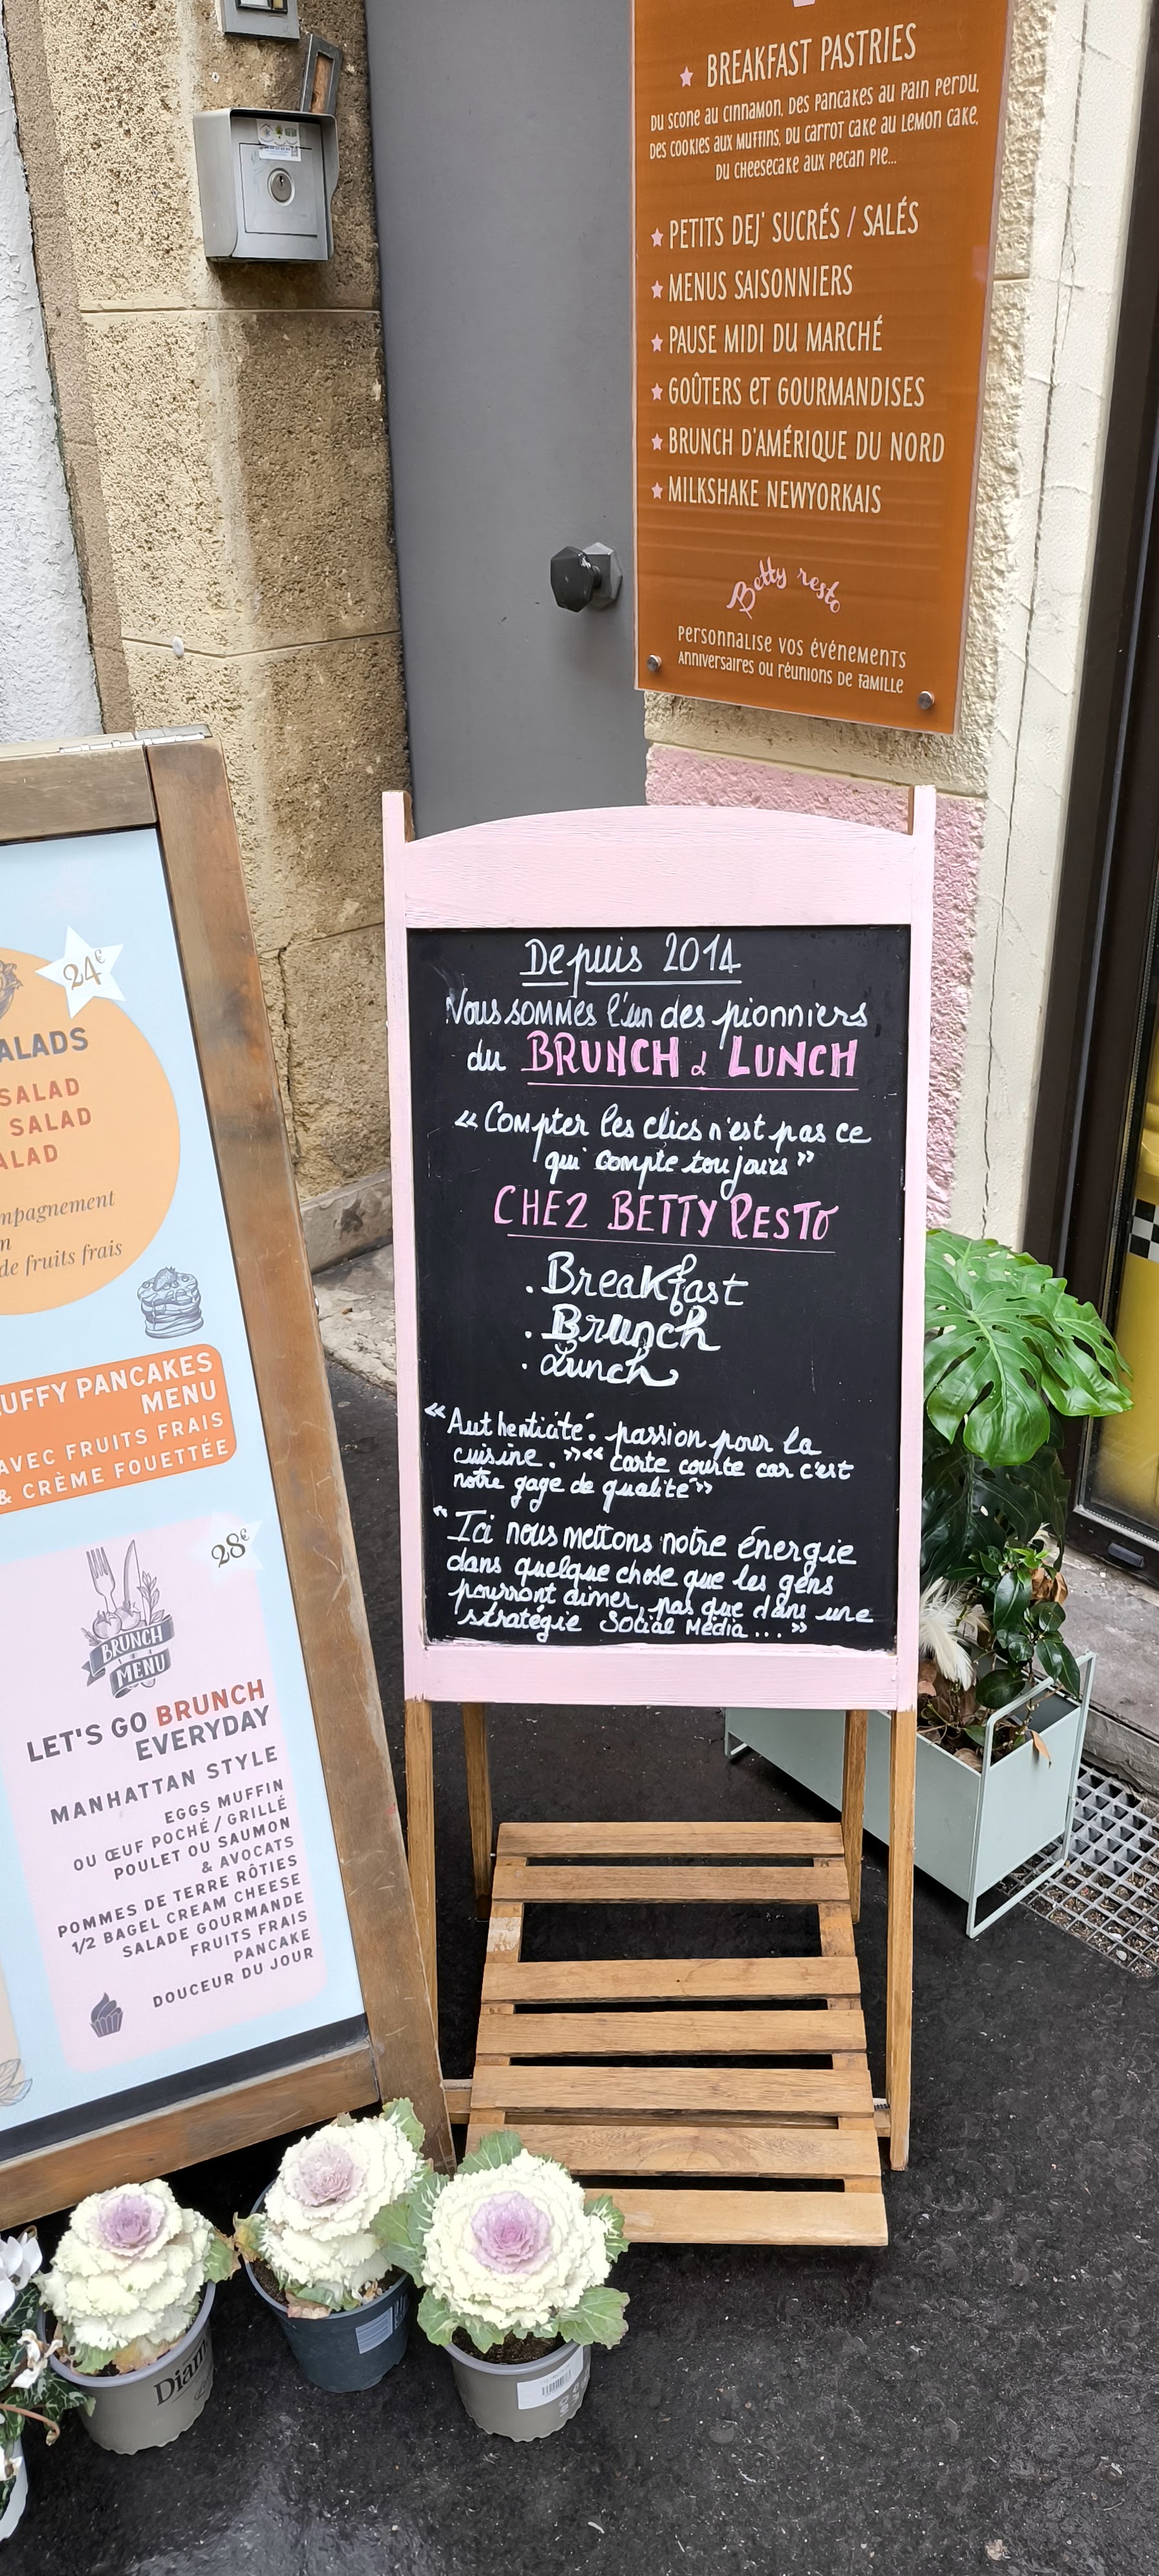 BREAKFAST PASTRIES
DU SCONE AU CINNAMON, DES PANCAKES AU PAIN PERDU,
DES COOKIES AUX MUFFINS, DU CARROT CAKE AU LEMON CAKE,
DU CHEESECAKE AUX PECAN PIE...
PETITS DEJ' SUCRÉS / SALÉS
MENUS SAISONNIERS
PAUSE MIDI DU MARCHÉ
GOÛTERS ET GOURMANDISES
BRUNCH D'AMÉRIQUE DU NORD
MILKSHAKE NEWYORKAIS
Betty resto
PERSONNALISE VOS ÉVÉNEMENTS
ANNIVERSAIRES OU RÉUNIONS DE FAMILLE
Depuis 2014
Nous sommes l'un des pionniers
du BRUNCH & LUNCH
« Compter les clics n'est pas ce
qui compte toujours »
CHEZ BETTY RESTO
. Breakfast
. Brunch
. Lunch
« Authenticité. passion pour la
cuisine. » « carte courte car c'est
notre gage de qualité »
" Ici nous mettons notre énergie
dans quelque chose que les gens
pourront aimer, pas que dans une
stratégie Social Média... »
24€
ALADS
SALAD
SALAD
ALAD
mpagnement
n
de fruits frais
UFFY PANCAKES
MENU
AVEC FRUITS FRAIS
& CRÈME FOUETTÉE
28€
BRUNCH
MENU
LET'S GO BRUNCH
EVERYDAY
MANHATTAN STYLE
EGGS MUFFIN
OU ŒUF POCHÉ / GRILLÉ
POULET OU SAUMON
& AVOCATS
POMMES DE TERRE RÔTIES
1/2 BAGEL CREAM CHEESE
SALADE GOURMANDE
FRUITS FRAIS
PANCAKE
DOUCEUR DU JOUR
Diam